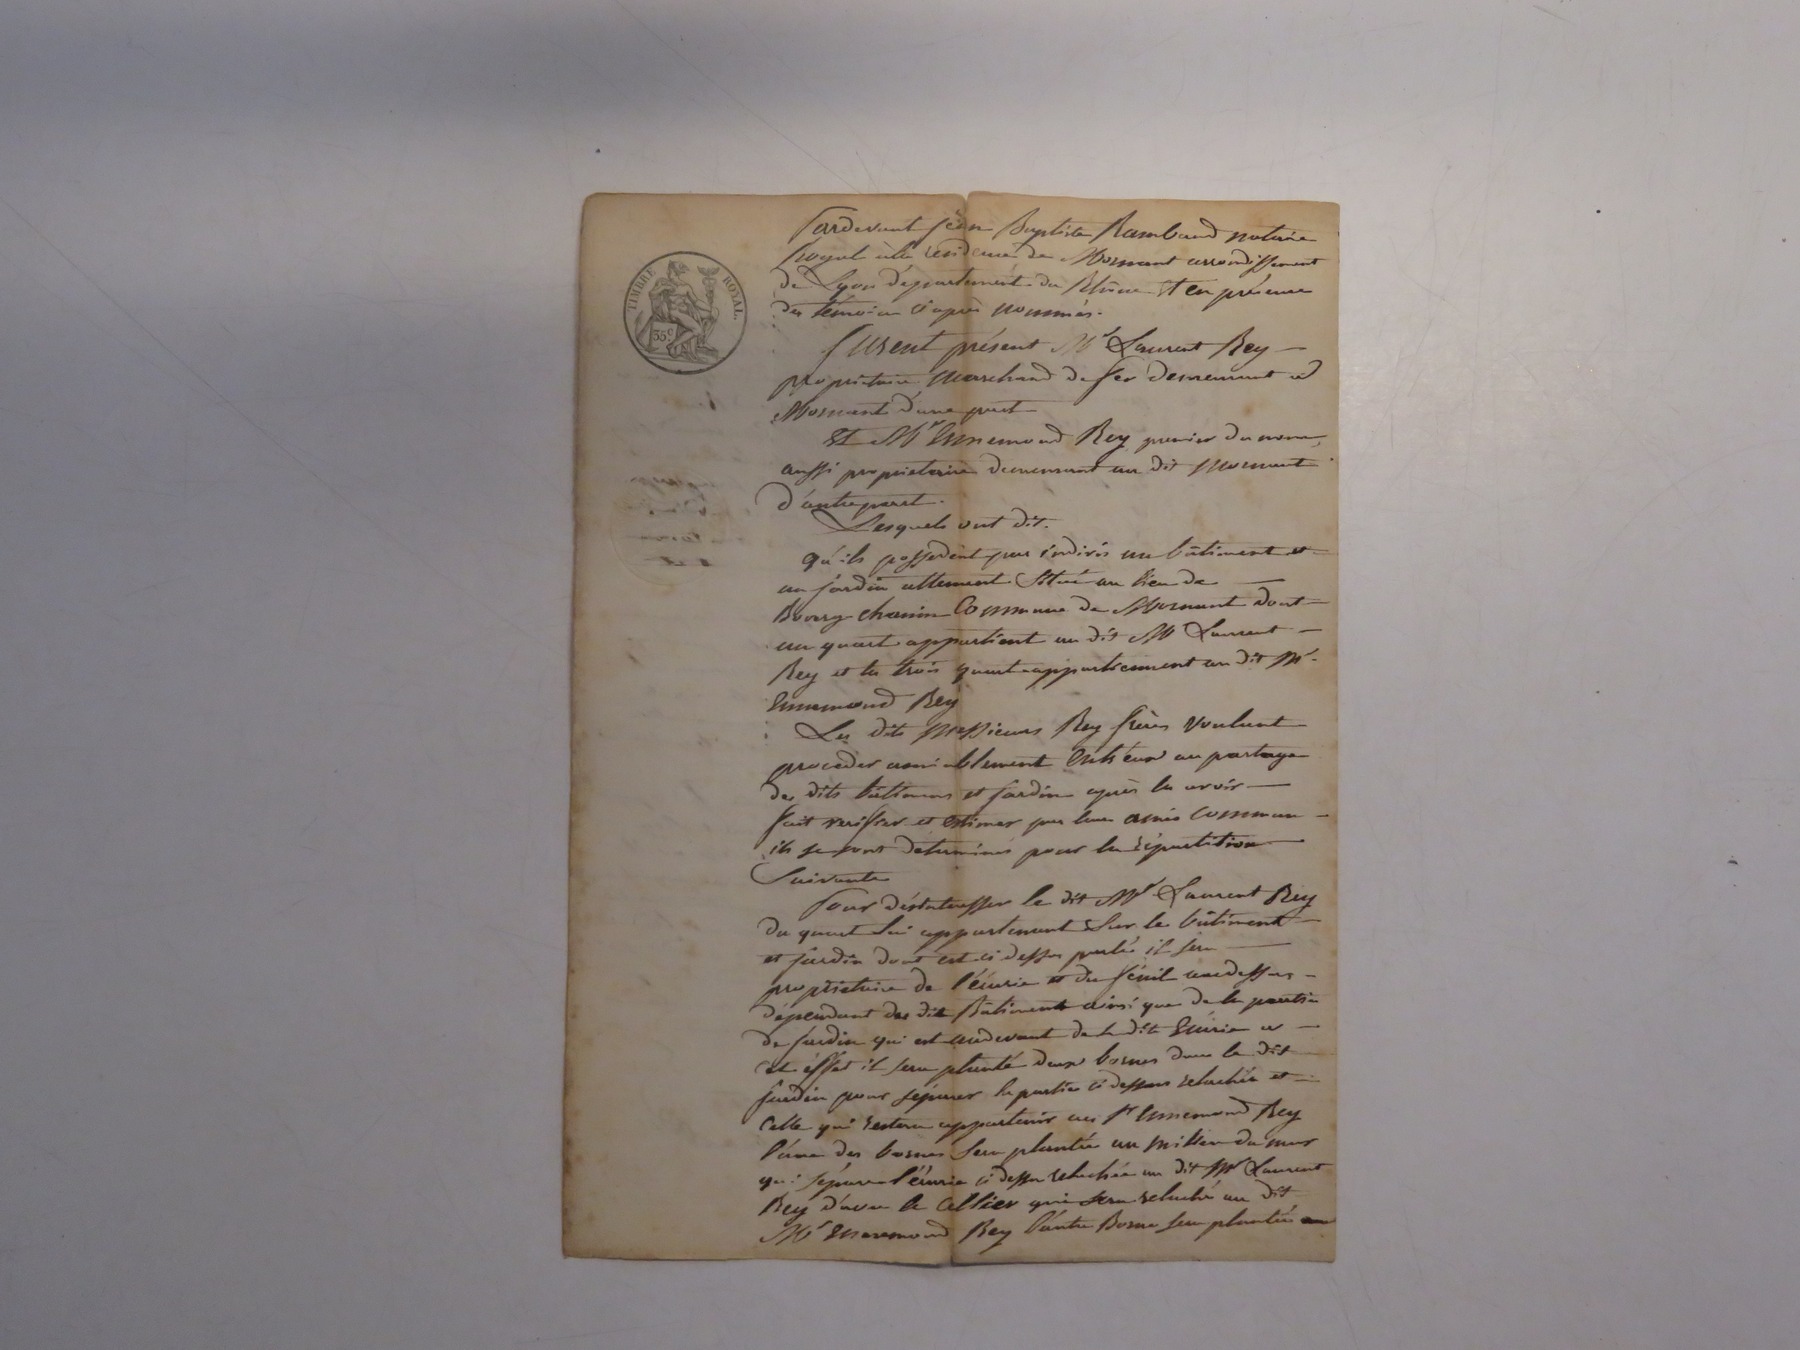 TIMBRE ROYAL.
35c
Pardevant Jean Baptiste Rambaud notaire
Royal à la résidence de Mornant arrondissement
de Lyon département du Rhône Et en présence
des témoins ci après nommés.
furent présent Mr Laurent Rey
propriétaire Marchand de fer demeurant à
Mornant d'une part
Et Mr Ennemond Rey premier du nom,
aussi propriétaire demeurant au dit Mornant
d'autre part.
Lesquels ont dit.
qu'ils possedent par indivis un bâtiment et
un jardin attement Situé au lieu de
Bourg chanin Commune de Mornant dont
un quart appartient au dit Mr Laurent
Rey et les trois quart appartiennent au dit Mr
Ennemond Rey
Les dits Messieurs Rey frères voulant
proceder amiablement Entr'eux au partage
des dits bâtimens et jardin après les avoir
fait verifier et Estimer par leur amis commun
ils se sont determinés pour la répartition
Suivante
Pour désinteresser le dit Mr Laurent Rey
du quart lui appartenant Sur le bâtiment
et jardin dont est ci dessus parlé il sera
propriétaire de l'écurie et du fénil audessus
dépendant des dit Bâtiments ainsi que de la partie
de jardin qui est audevant de la dite Ecurie a
cet éffet il sera planté deux bornes dans le dit
jardin pour séparer la partie ci dessus relachée et
Celle qui restera appartenir au Sr Ennemond Rey
l'une des bornes Sera plantée au milieu du mur
qui sépare l'écurie ci dessus relachée au dit Mr Laurent
Rey d'avec le Cellier qui sera relaché au dit
Mr Ennemond Rey l'autre Borne sera plantée au